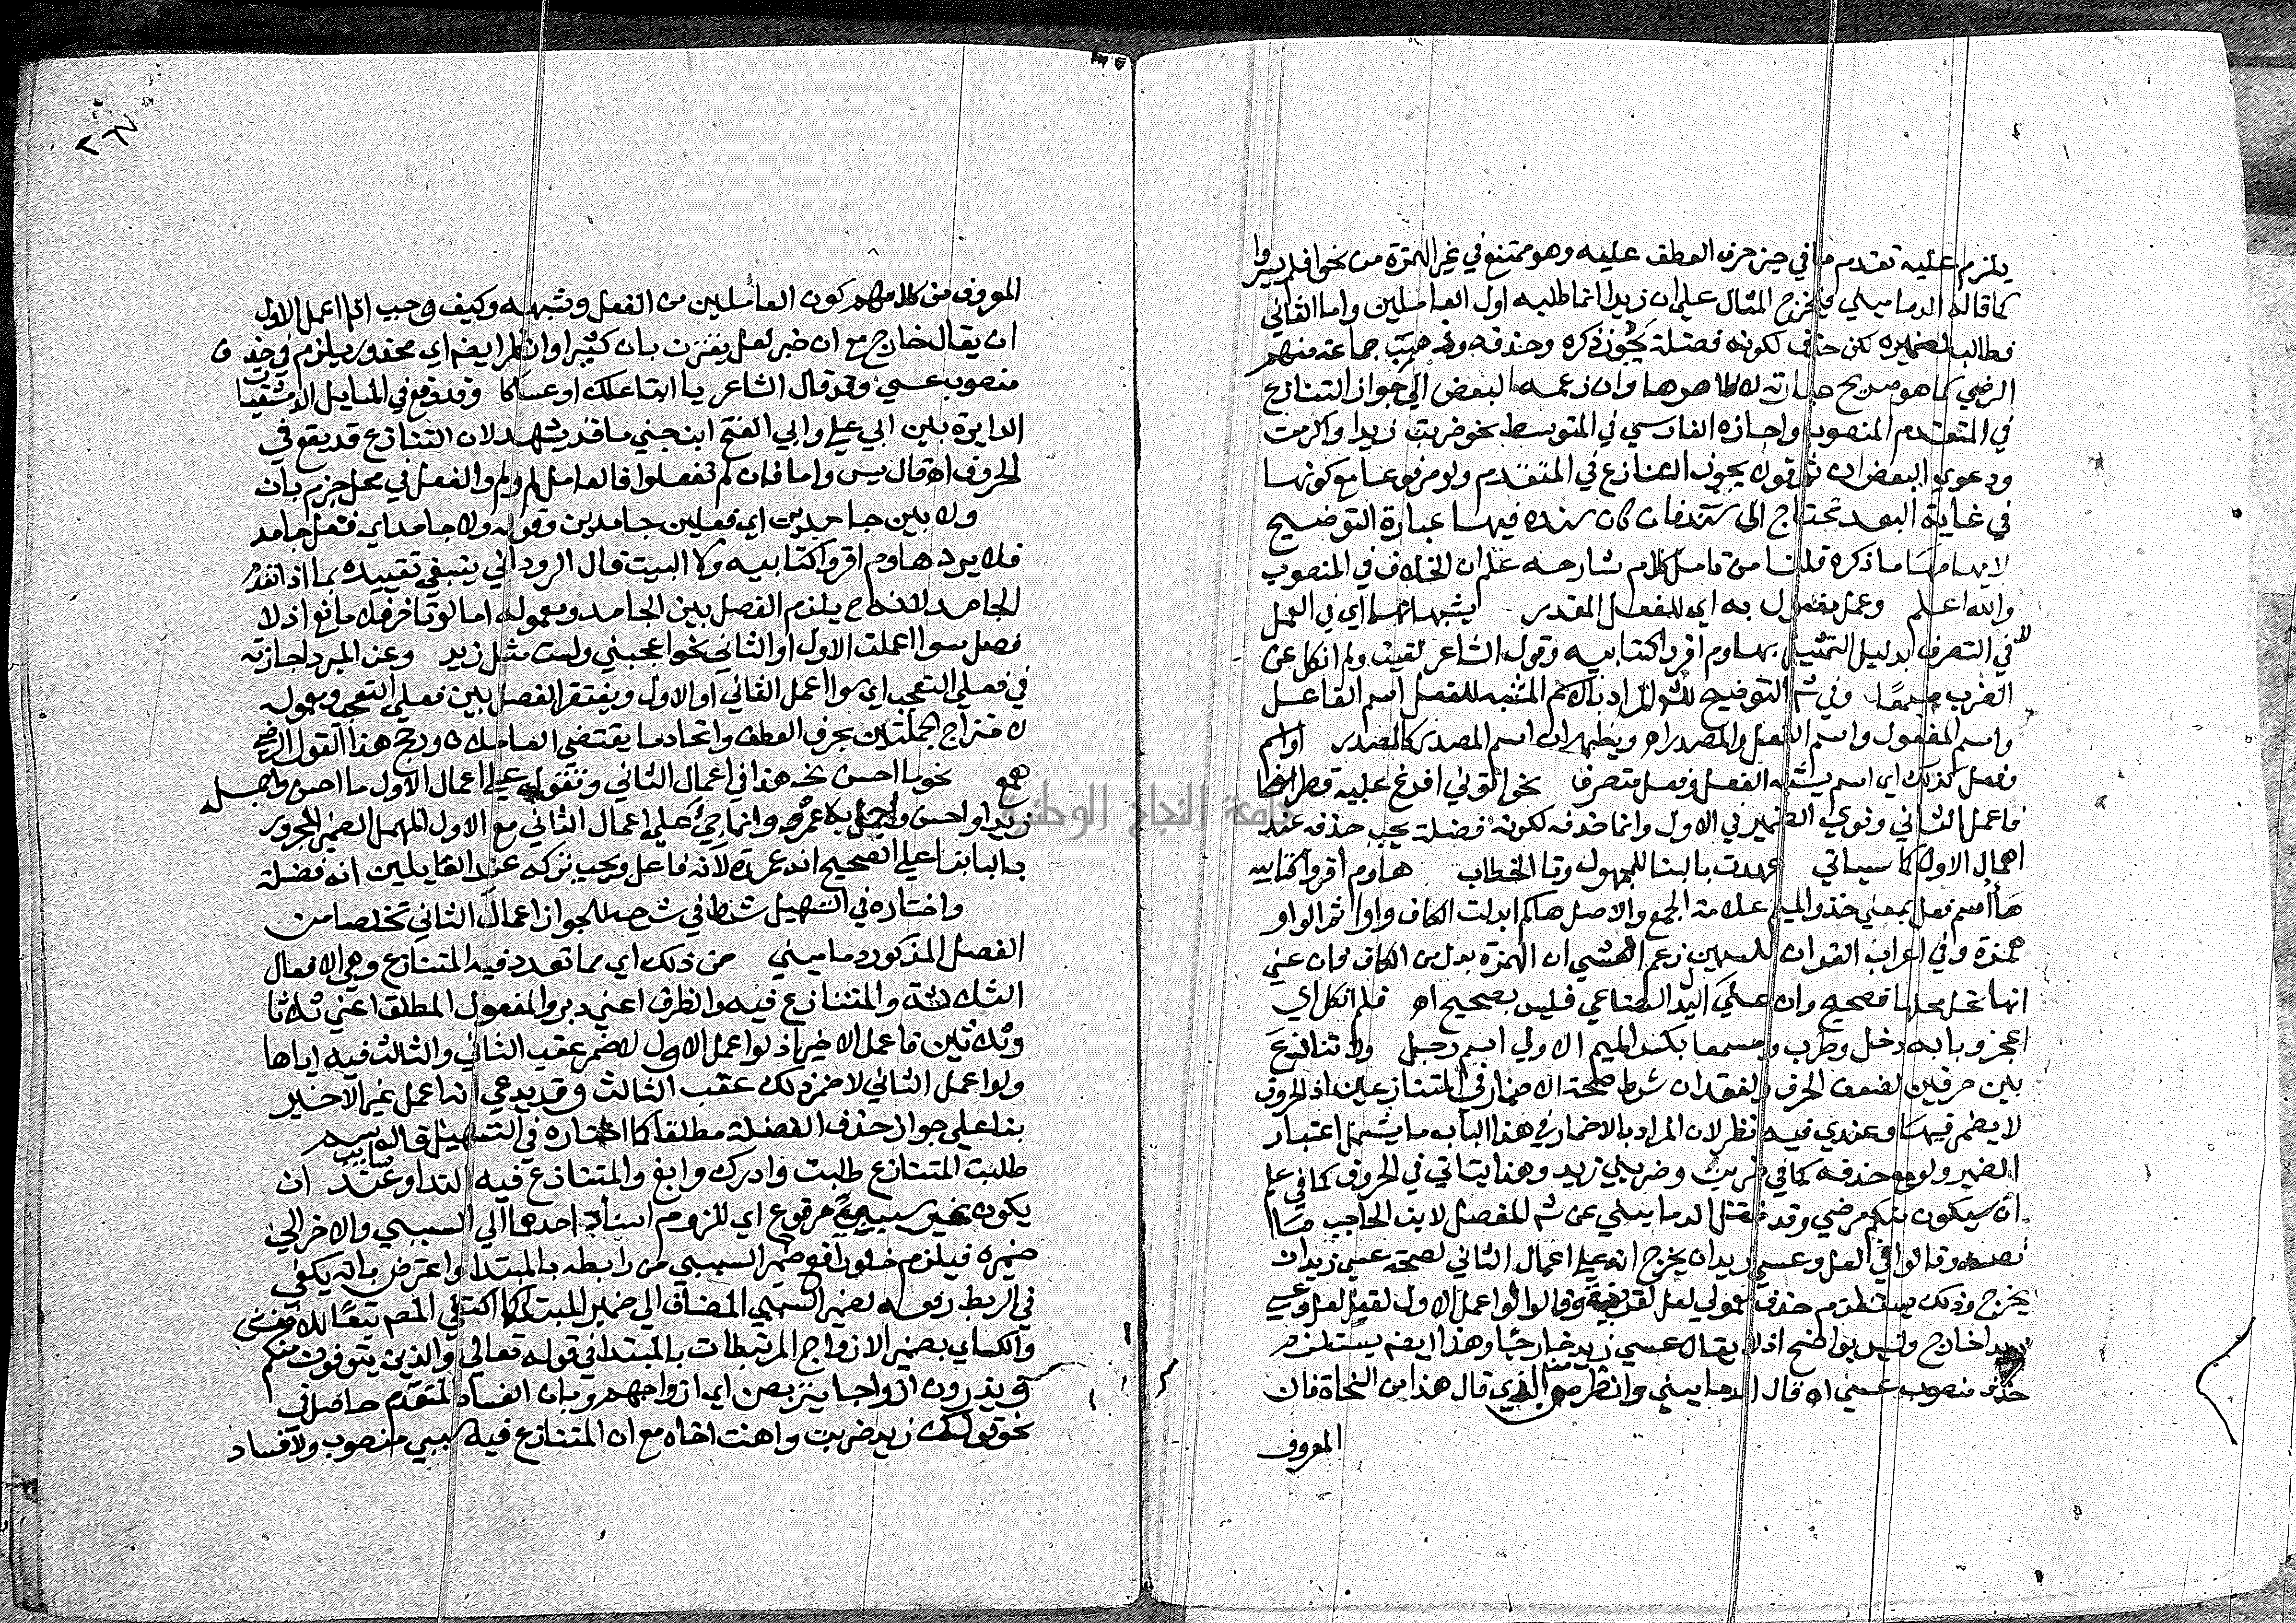 يلزم عليه تقدم ما في حيز حرف العطف عليه وهو ممتنع في غير الهمزة من نحو افلم يسيروا
كما قاله الدماميني في تخرج المثال علي ان زيدا انما طلبه اول العاملين واما الثاني
فطالب لضميره لكن حذف لكونه فضلة يجوز ذكره وحذفه جماعة منهم
الرضي كما هو صريح عبارته وان زعمه البعض الي جواز التنازع
في المتقدم المنصوب واجازه الفارسي في المتوسط نحو ضربت زيدا واكرمت
ودعوي البعض ان يجوز التنازع في المتقدم ولو مرفوعا مع كونها
في غاية البعد تحتاج الي سند فان كان سنده فيها عبارة التوضيح
لايهامها ما ذكره قلنا من تامل كلام شارحه علم ان الخلاف في المنصوب
والله اعلم وعمل مفعول به اي للفعل المقدر يشبهانهما اي في العمل
لا في التصرف بدليل التمثيل بهاوم اقروا كتابيه وقول الشاعر لقيت ولم انكل عن
الضرب مسمعا وفي التوضيح المراد بالاسم المشبه للفعل اسم الفاعل
واسم المفعول واسم الفعل والمصدر اه ويظهر ان اسم المصدر كالمصدر او اسم
وفعل كذلك اي اسم يشبه الفعل وفعل متصرف نحو اتوني افرغ عليه قطرا
فاعمل الثاني ونوي الضمير في الاول وانما حذف لكونه فضلة يجب حذفه عند
اهمال الاول كما سياتي عهدت بالبنا للمجهول وتا الخطاب هاوم اقروا كتابيه
ها اسم فعل بمعني خذ والميم علامة الجمع والاصل هاكم ابدلت الكاف واوا ثم الواو
همزة وفي اعراب القران للسمين زعم ان الهمزة بدل من الكاف فان عني
انها تحل محلها فصحيح وان عني البدل الصناعي فليس بصحيح اه فلم انكل اي
اعجز وبابه دخل وطرب ومسمعا بكسر الميم الاولي اسم رجل ولا تنازع
بين حرفين لضعف الحرف ولفقدان شرط صحة الاضمار في المتنازعين اذ الحروف
لا يضمر فيها وعندي فيه نظر لان المراد بالاضمار في هذا الباب ما يشمل اعتبار
الضمير ولو مع حذفه كما في ضربت وضربني زيد وهذا يتاتي في الحروف كما في علم
ان سيكون منكم مرضي وقد نقل الدماميني عن المفصل لابن الحاجب ما
نصه وقالوا في لعل وعسي زيد ان يخرج انه علي اعمال الثاني لصحة عسي زيد ان
يخرج وذلك يستلزم حذف معمولي لعل وقالوا لو اعمل الاول لقيل لعل وعسي
زيدا خارج وليس بواضح اذ لا يقال عسي زيد خارجا وهذا ايضا يستلزم
حذف منصوب عسي اه قال الدماميني وانظر من الذي قال هذا من النحاة فان
المعروف
٢٦٧
المعروف من كلامهم كون العاملين من الفعل وشبهه وكيف وجب اذا اعمل الاول
ان يقال خارج مع ان خبر لعل يقترن بان كثيرا وانظر ايضا اي محذور يلزم في حذف
منصوب عسي وقد قال الشاعر يا ابتا علك او عساكا وقد وقع في المسايل الدمشقيات
الدايرة بين ابي علي وابي الفتح ابن جني ما قد يشهد لان التنازع قد يقع في
الحروف اه قال يس واما فان لم تفعلوا فالعامل لم ولم والفعل في محل جزم بان
ولا بين جامدين اي فعلين جامدين وقوله ولا جامد اي فعل جامد
فلا يرد هاوم اقروا كتابيه ولا البيت قال الروداني ينبغي تقييده بما اذا تقدم
الجامد لانه ح يلزم الفصل بين الجامد ومعموله اما لو تاخر فلا مانع اذ لا
فصل سوا اعملت الاول او الثاني نحو اعجبني ولست مثل زيد وعن المبرد اجازته
في فعلي التعجب اي سوا اعمل الثاني او الاول ويغتفر الفصل بين فعلي التعجب ومعموله
لامتزاج الجملتين بحرف العطف واتحاد ما يقتضي العاملان ورجح هذا القول الرضي
همع نحو ما احسن هذا في اعمال الثاني وتقول علي اعمال الاول ما احسن واجمل
زيدا واحسن واجمل به عمرو وانما علي اعمال الثاني مع الاول المهمل الضمير المجرور
بالبا بنا علي الصحيح انه عمدة لانه فاعل ويجب تركه عند القايلين انه فضلة
واختاره في التسهيل شرط في شرحه للجواز اعمال الثاني تخلصا من
الفصل المذكور دماميني من ذلك اي مما تعدد فيه المتنازع وهي الافعال
الثلاثة والمتنازع فيه والظرف اعني دبر والمفعول المطلق اعني ثلاثا
وثلاثين فاعمل الاخير اذ لو اعمل الاول لاضمر عقب الثاني والثالث فيه اياها
ولو اعمل الثاني لاضمر ذلك عقب الثالث وقد يدعي انه اعمل غير الاخير
بنا علي جواز حذف الفضلة مطلقا كما اختاره في التسهيل قاله سم
طلبت المتنازع طلبت وادرك وابغ والمتنازع فيه الندا وعند ان
يكون غير سببي مرفوع اي للزوم اسناد احدهما الي السببي والاخر الي
ضميره فيلزم خلو رافع ضمير السببي من رابطه بالمبتدا واعترض بانه يكفي
في الربط رفعه لضمير السببي المضاف الي ضمير المبتدا كما اكتفي المصم تبعا للاخفش
والكساي بضمير الازواج المرتبطات بالمبتدا في قوله تعالي والذين يتوفون منكم
ويذرون ازواجا يتربصن اي ازواجهم وبان الفساد المتقدم حاصل في
نحو قولك زيد ضربت واهنت اخاه مع ان المتنازع فيه سببي منصوب ولا فساد
جامعة النجاح الوطنية